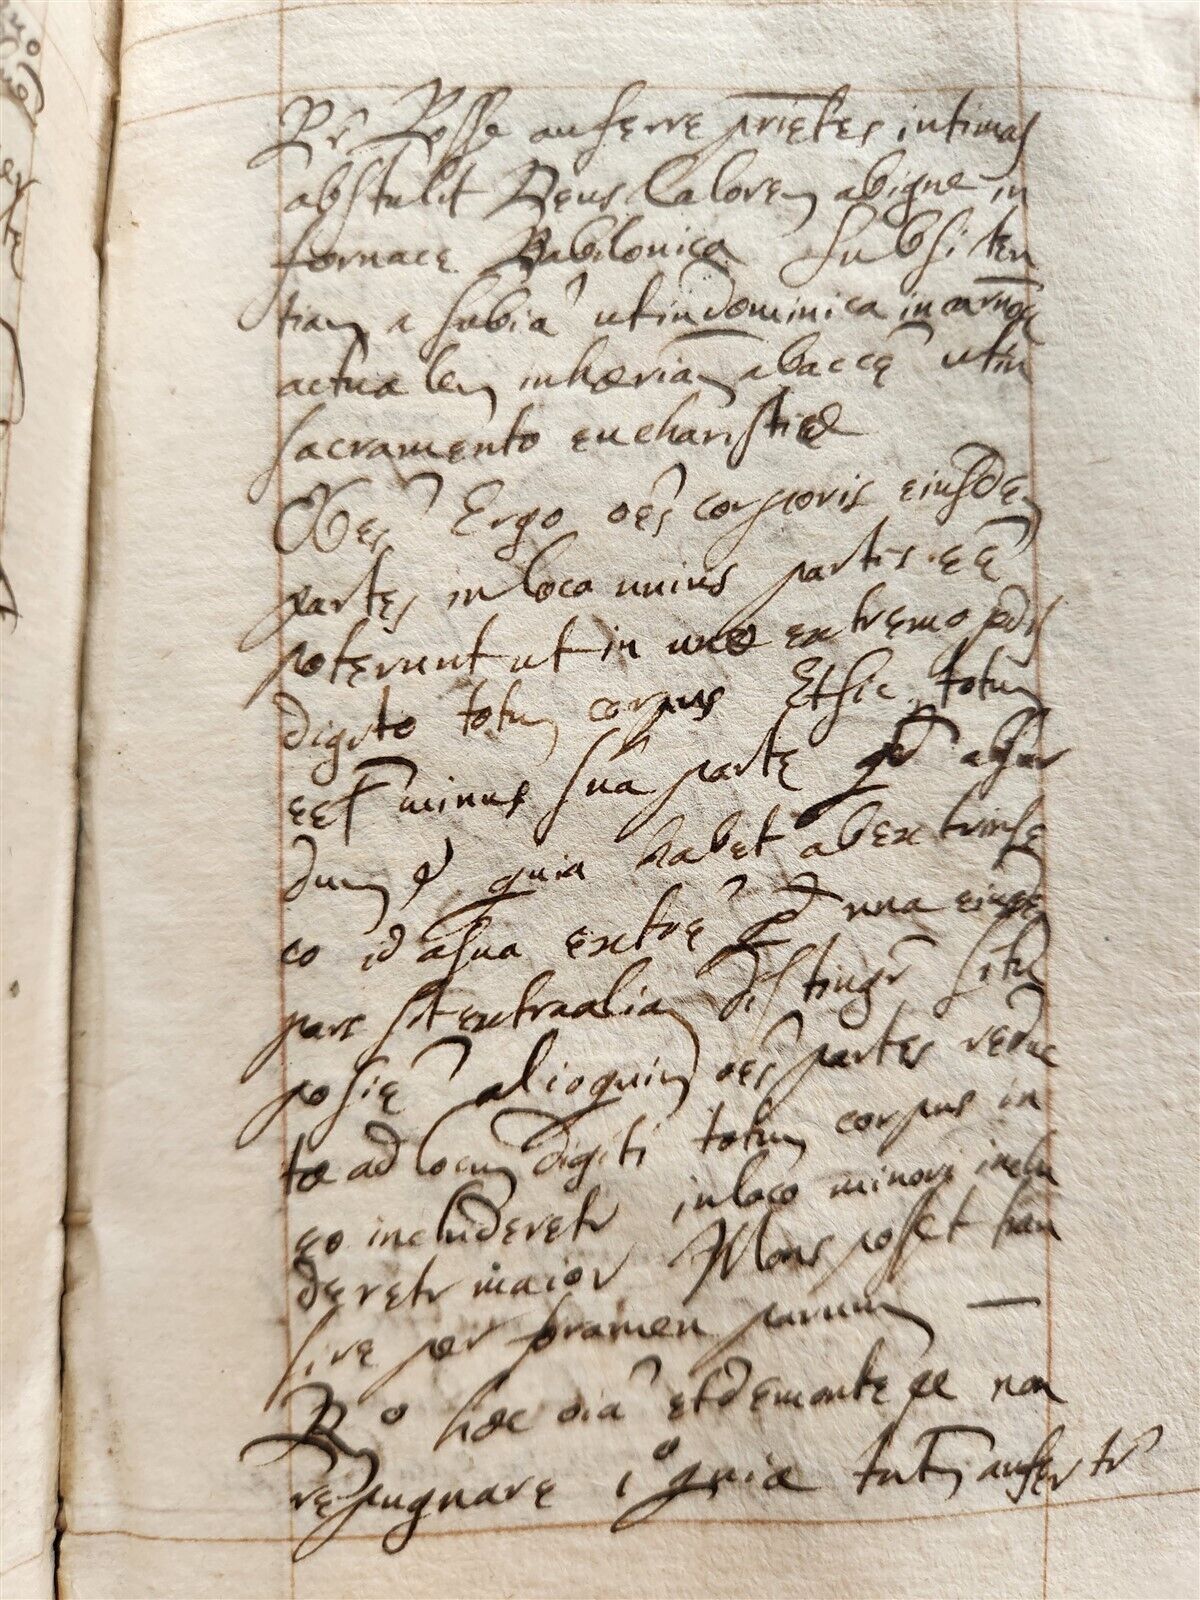 Rr Posse auferre prietes intimas
abstulit Deus Calorem ab igne in
fornace Babilonica Subsisten
tiam a subia ut in dominica incarnoe
actualem inhæriam ab accẽ ut in
sacramento eucharistiæ
Obes Ergo oẽs corporis eiusdẽ
partes in loco unius partis eẽ
poterunt ut in uno extremo pedis
digito totum corpus Et sic totum
eet minus sua parte qd absur
dum quia habet ab extrinse
co id a sua extrẽ qd una eiusdẽ
pars sit extra aliam distingr situ
posiẽ alioquin oẽs partes reduc
tæ ad locum digiti totum corpus in
eo includeretr in loco minori inclu
deretr maior Mons posset tran
sire per foramen parvum
Ro hæc oia et de monte se non
repugnare 1o quia tutm aufertr